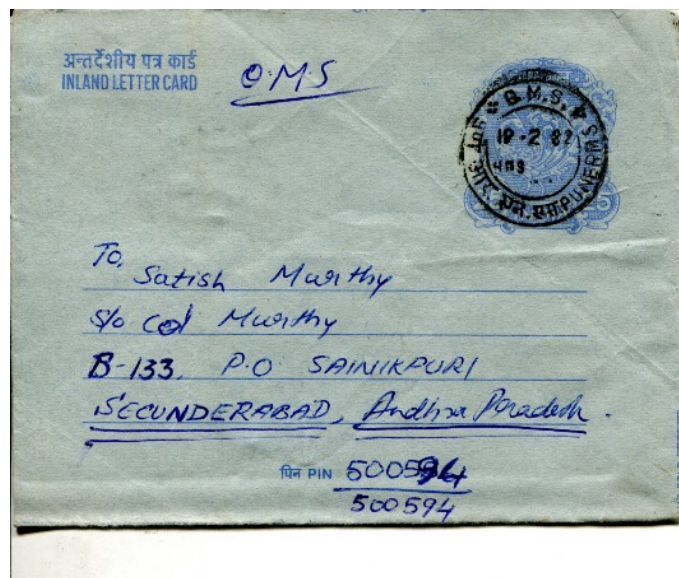 अन्तर्देशीय पत्र कार्ड
INLAND LETTER CARD
Q.M.S
Q.M.S. 4
18-2 82
4 HRS
आर. एम. एस. PUNE RMS
To,
Satish Murthy
S/o Col Murthy
B-133, P.O SAINIKPURI
SECUNDERABAD, Andhra Pradesh.
पिन PIN 500594
500594